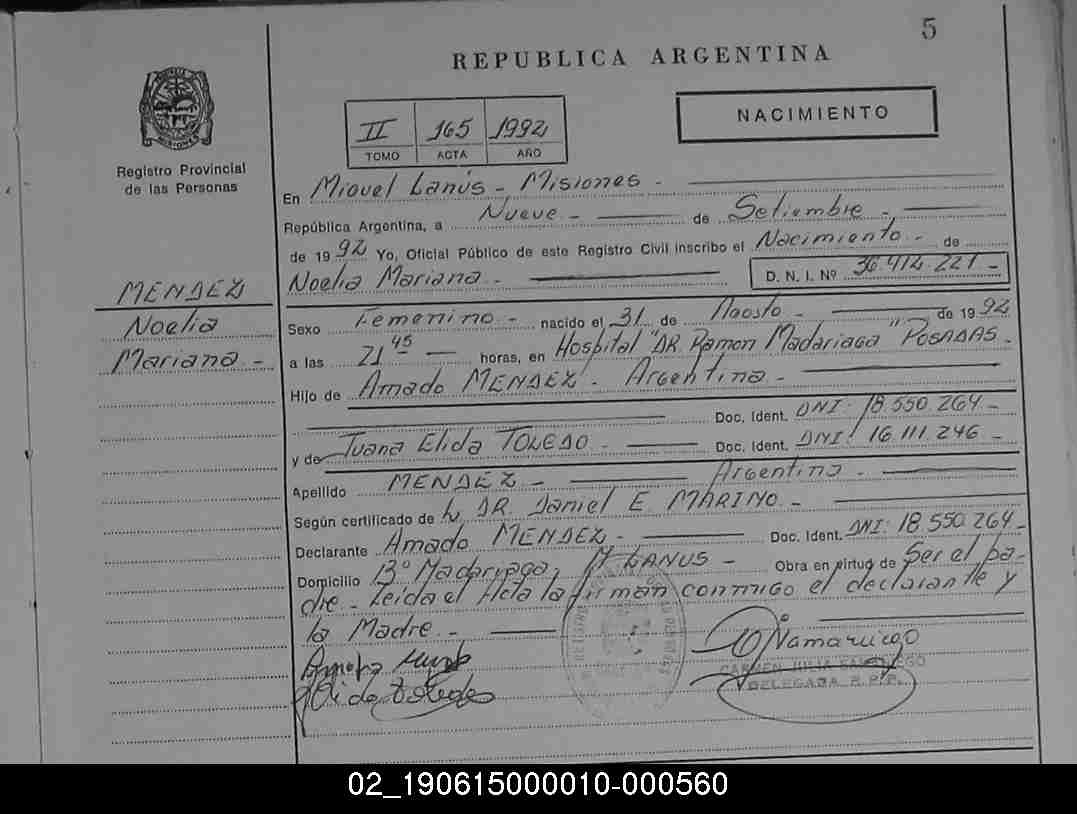 5
REPUBLICA ARGENTINA
NACIMIENTO
II 165 1992
TOMO ACTA AÑO
Registro Provincial
de las Personas
En Miguel Lanús - Misiones -
República Argentina, a Nueve - de Setiembre -
de 1992 Yo, Oficial Público de este Registro Civil inscribo el Nacimiento - de
Noelia Mariana - D. N. I. Nº 36.414.221 -
MENDEZ
Noelia
Mariana -
Sexo Femenino - nacido el 31 de Agosto - de 1992
a las 21 45 horas, en Hospital "DR. Ramon Madariaga" POSADAS -
Hijo de Amado MENDEZ - Argentina -
Doc. Ident. DNI: 18.550.264 -
y de Juana Elida TOLEDO - Doc. Ident. DNI: 16.111.246 -
Apellido MENDEZ - Argentina -
Según certificado de DR. Daniel E. MARINO -
Declarante Amado MENDEZ - Doc. Ident. DNI: 18.550.264 -
Domicilio Bº Madariaga, M LANUS - Obra en virtud de Ser el pa-
dre - Leida el Acta la firman conmigo el declarante y
la Madre -
Elida Toledo
CARMEN JULIA
DELEGADA R.P.P.
02_190615000010-000560